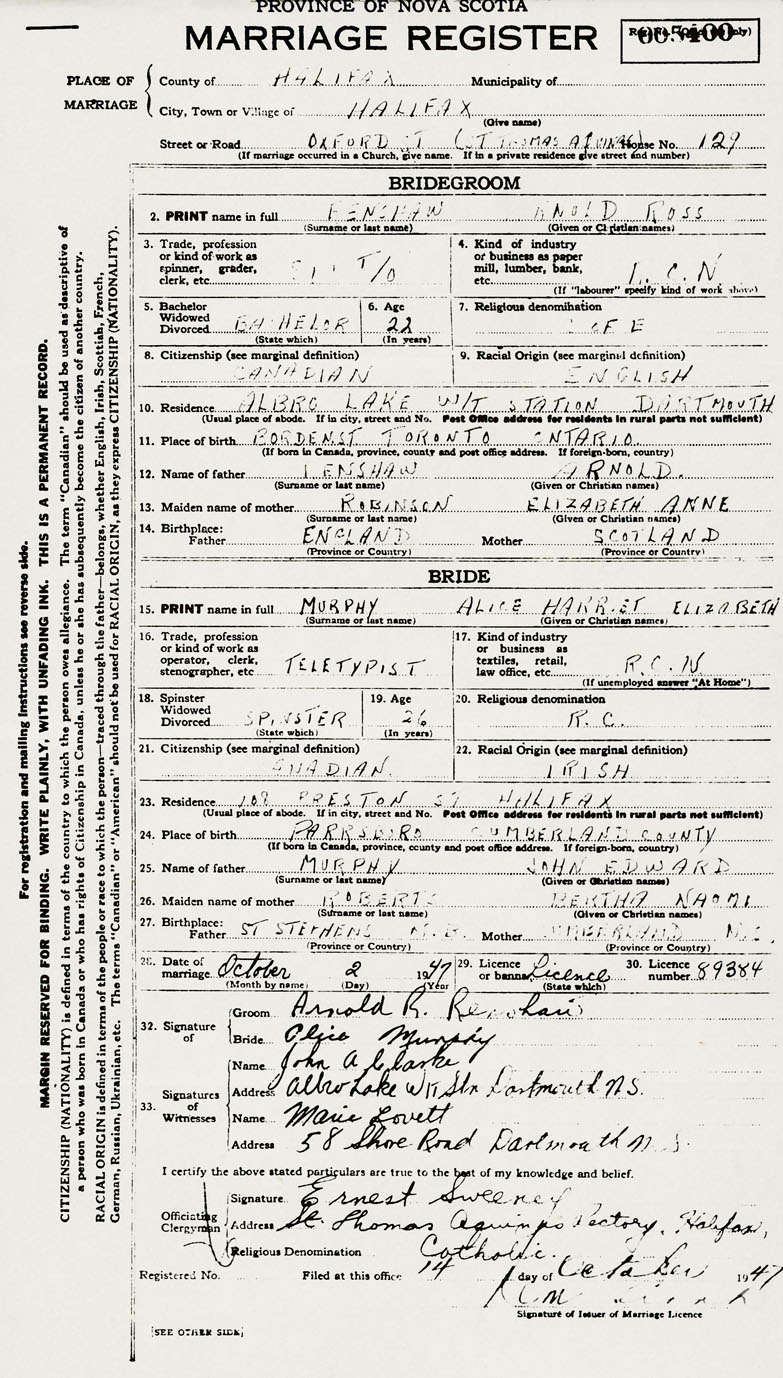 PROVINCE OF NOVA SCOTIA
MARRIAGE REGISTER
PLACE OF MARRIAGE
County of HALIFAX Municipality of
City, Town or Village of HALIFAX
(Give name)
Street or Road OXFORD ST (ST THOMAS AQUINAS) House No. 129
(If marriage occurred in a Church, give name. If in a private residence give street and number)
BRIDEGROOM
2. PRINT name in full RENSHAW ARNOLD ROSS
(Surname or last name) (Given or Christian names)
3. Trade, profession or kind of work as spinner, grader, clerk, etc. T/O
4. Kind of industry or business as paper mill, lumber, bank, etc. R.C.N
(If "labourer" specify kind of work above)
5. Bachelor Widowed Divorced BACHELOR
(State which)
6. Age 22
(In years)
7. Religious denomination C OF E
8. Citizenship (see marginal definition) CANADIAN
9. Racial Origin (see marginal definition) ENGLISH
10. Residence ALBRO LAKE W/T STATION DARTMOUTH
(Usual place of abode. If in city, street and No. Post Office address for residents in rural parts not sufficient)
11. Place of birth BORDEN ST TORONTO ONTARIO
(If born in Canada, province, county and post office address. If foreign-born, country)
12. Name of father RENSHAW ARNOLD
(Surname or last name) (Given or Christian names)
13. Maiden name of mother ROBINSON ELIZABETH ANNE
(Surname or last name) (Given or Christian names)
14. Birthplace: Father ENGLAND Mother SCOTLAND
(Province or Country) (Province or Country)
BRIDE
15. PRINT name in full MURPHY ALICE HARRIET ELIZABETH
(Surname or last name) (Given or Christian names)
16. Trade, profession or kind of work as operator, clerk, stenographer, etc TELETYPIST
17. Kind of industry or business as textiles, retail, law office, etc. R.C.N
(If unemployed answer "At Home")
18. Spinster Widowed Divorced SPINSTER
(State which)
19. Age 26
(In years)
20. Religious denomination R.C.
21. Citizenship (see marginal definition) CANADIAN
22. Racial Origin (see marginal definition) IRISH
23. Residence 108 PRESTON ST HALIFAX
(Usual place of abode. If in city, street and No. Post Office address for residents in rural parts not sufficient)
24. Place of birth PARRSBORO CUMBERLAND COUNTY
(If born in Canada, province, county and post office address. If foreign-born, country)
25. Name of father MURPHY JOHN EDWARD
(Surname or last name) (Given or Christian names)
26. Maiden name of mother ROBERTS BERTHA NAOMI
(Surname or last name) (Given or Christian names)
27. Birthplace: Father ST STEPHENS N.B. Mother CUMBERLAND N.S.
(Province or Country) (Province or Country)
28. Date of marriage October 2 1947
(Month by name) (Day) (Year)
29. Licence or banns Licence
(State which)
30. Licence number 89384
32. Signature of
Groom Arnold R. Renshaw
Bride Alice Murphy
33. Signatures of Witnesses
Name John A Clarke
Address Albro Lake W/T Stn Dartmouth N.S.
Name Marie Lovett
Address 58 Shore Road Dartmouth N.S.
I certify the above stated particulars are true to the best of my knowledge and belief.
Officiating Clergyman
Signature Ernest Sweeney
Address St. Thomas Aquinas Rectory, Halifax,
Religious Denomination Catholic.
Registered No. Filed at this office 14 day of October 1947
Signature of Issuer of Marriage Licence
[SEE OTHER SIDE]
For registration and mailing instructions see reverse side.
MARGIN RESERVED FOR BINDING. WRITE PLAINLY, WITH UNFADING INK. THIS IS A PERMANENT RECORD.
CITIZENSHIP (NATIONALITY) is defined in terms of the country to which the person owes allegiance. The term "Canadian" should be used as descriptive of
a person who was born in Canada or who has rights of Citizenship in Canada, unless he or she has subsequently become the citizen of another country.
RACIAL ORIGIN is defined in terms of the people or race to which the person—traced through the father—belongs, whether English, Irish, Scottish, French,
German, Russian, Ukrainian, etc. The terms "Canadian" or "American" should not be used for RACIAL ORIGIN, as they express CITIZENSHIP (NATIONALITY).